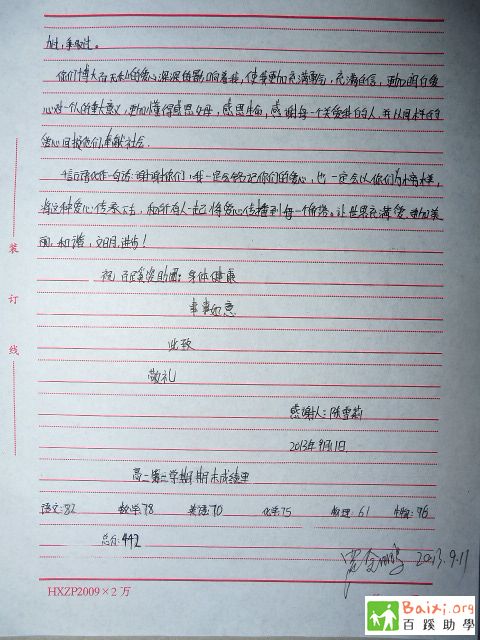 你们博大而无私的爱心深深的影响着我,使我更加充满勇气,充满自信,更加明白爱
心对一个人的重大意义,更加懂得感恩父母,感恩生命,感谢每一个关爱我的人,我以同样的
爱心回报你们,奉献社会.
千言万语化作一句话:谢谢你们,我一定会铭记你们的爱心,也一定会以你们为榜样,
将这种爱心传承下去,和所有人一起将爱心传播到每一个角落。让世界充满爱,更加美
丽,和谐,文明,进步!
祝百蹊资助团:身体健康
事事如意
此致
敬礼
感谢人:陈雪莉
2013年9月11日
高二第二学期期末成绩单
语文:82 数学:78 英语:70 化学:75 物理:61 生物:76
总分:442
2013.9.11
装
订
线
HXZP2009×2万
Baixi.org
百蹊助學